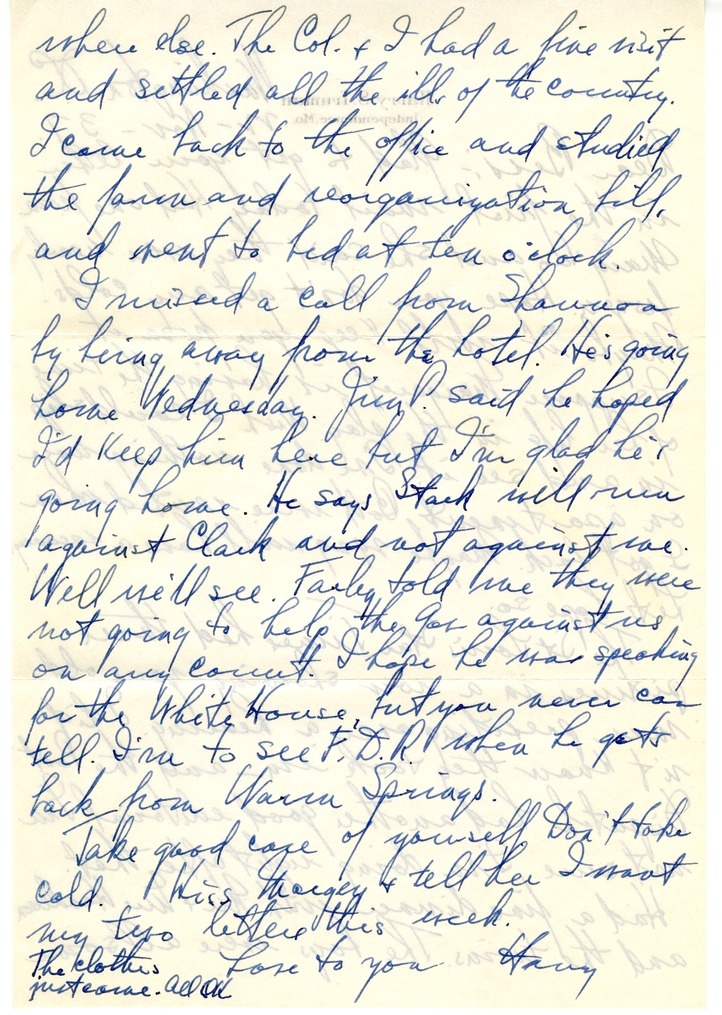 where else. The Col. & I had a fine visit
and settled all the ills of the country.
I came back to the office and studied
the farm and reorganization bill,
and went to bed at ten o'clock.
I missed a call from Shannon
by being away from the hotel. He's going
home Wednesday. Jim P. said he hoped
I'd keep him here but I'm glad he's
going home. He says Stark will run
against Clark and not against me.
Well we'll see. Farley told me they were
not going to help the Gov against us
on any count. I hope he was speaking
for the White House, but you never can
tell. I'm to see F.D.R. when he gets
back from Warm Springs.
Take good care of yourself Don't take
cold. Kiss Margey & tell her I want
my two letters this week.
Love to you Harry
The clothes
just came. All OK